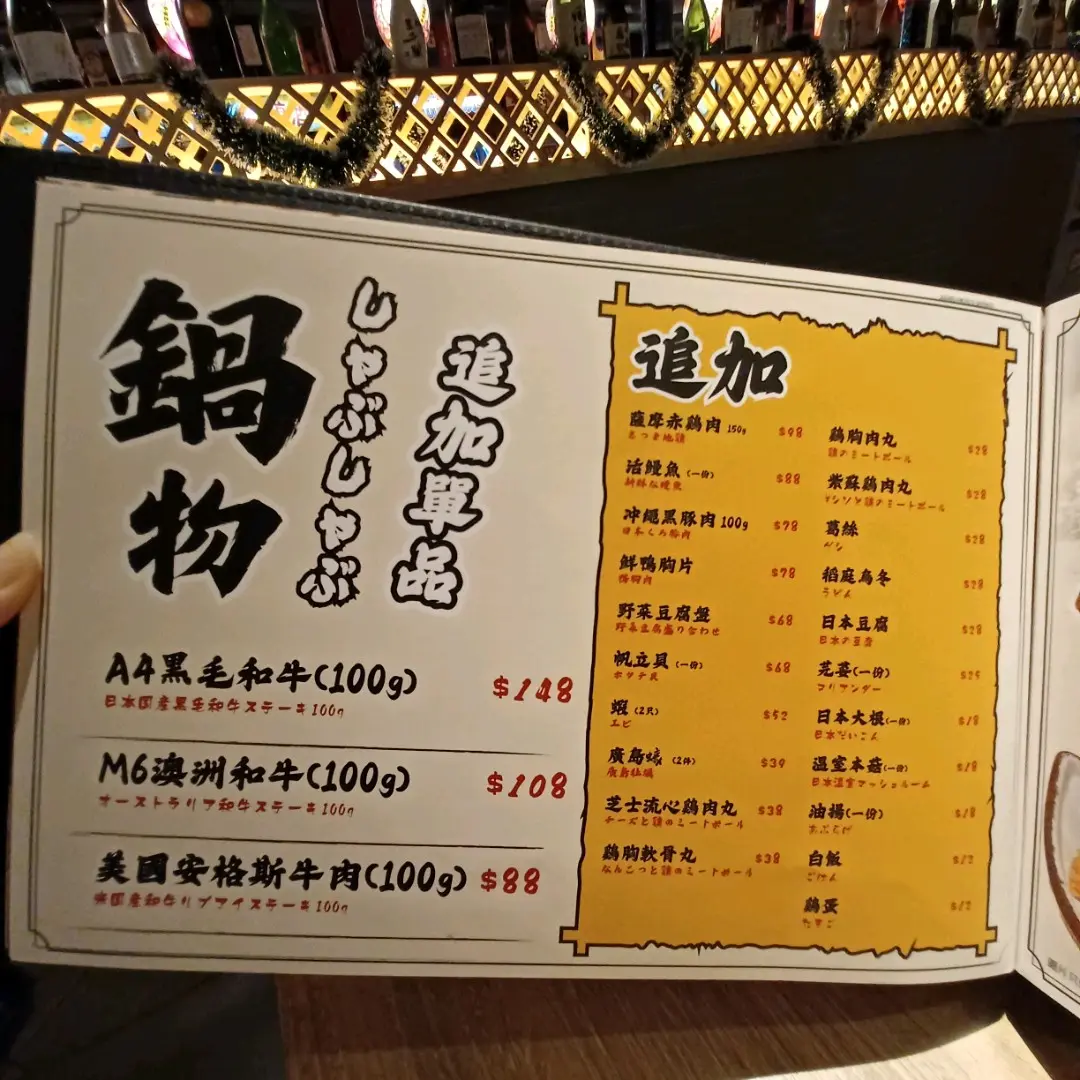 鍋物
しゃぶしゃぶ
追加單品
A4黒毛和牛(100g) $148
日本国産黒毛和牛ステーキ100g
M6澳洲和牛(100g) $108
オーストラリア和牛ステーキ100g
美國安格斯牛肉(100g) $88
米国産和牛リブアイステーキ100g
追加
薩摩赤鶏肉 150g $98
活鰻魚 (一份) $88
新鮮な鰻魚
沖繩黒豚肉 100g $78
日本くろ豚肉
鮮鴨胸片 $78
鴨胸肉
野菜豆腐盤 $68
野菜豆腐盛り合わせ
帆立貝 (一份) $68
ホタテ貝
蝦 (2只) $52
エビ
廣島蠔 (2件) $39
廣島牡蠣
芝士流心鶏肉丸 $38
チーズと鶏のミートボール
鶏胸軟骨丸 $38
なんこつと鶏のミートボール
鶏胸肉丸 $28
鶏のミートボール
紫蘇鶏肉丸 $28
葛絲 $28
稻庭烏冬 $28
うどん
日本豆腐 $28
日本の豆腐
芫荽(一份) $25
コリアンダー
日本大根(一份) $18
日本だいこん
温室本菇(一份) $18
日本温室マッシュルーム
油揚(一份) $18
あぶらげ
白飯 $12
ごはん
鶏蛋 $12
たまご